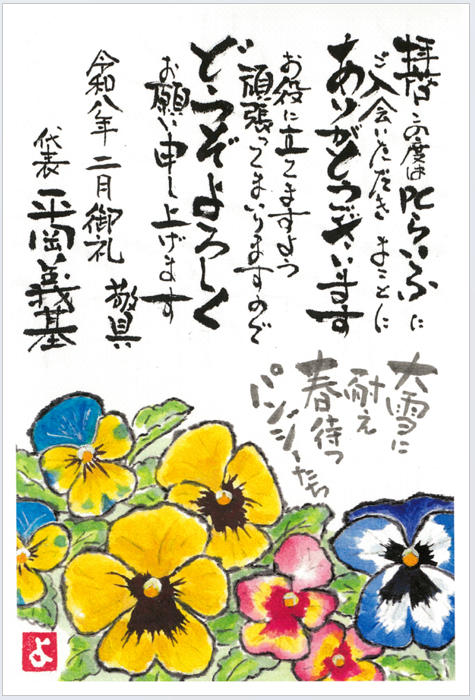 拝啓 この度はPCらいふに
ご入会いただき まことに
ありがとうございます
お役に立てますよう
頑張ってまいりますので
どうぞよろしく
お願い申し上げます
敬具
令和八年 二月 御礼
代表 平岡義基
大雪に
耐え
春待つ
パンジーたち
よ